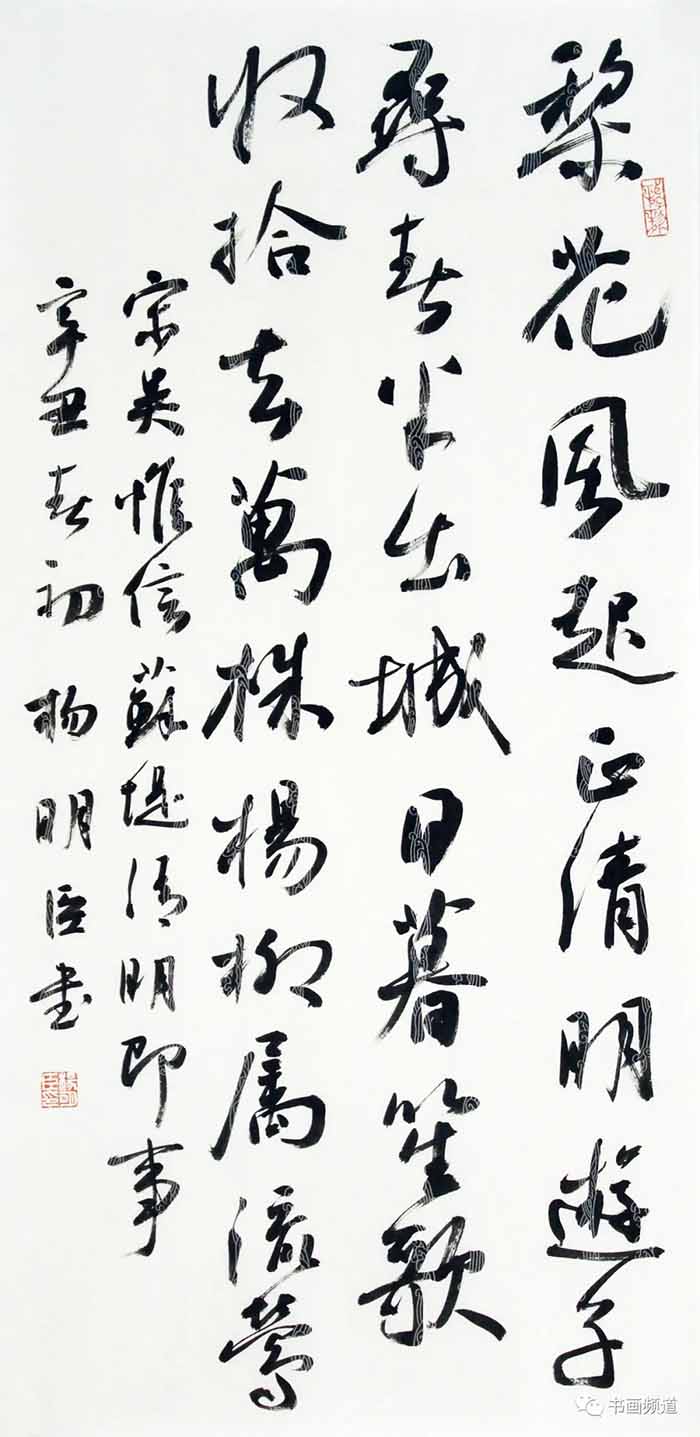 梨花风起正清明遊子
尋春半出城日暮笙歌
收拾去萬株楊柳属流莺
宋吴惟信蘇堤清明即事
辛丑春初杨明臣书
书画频道